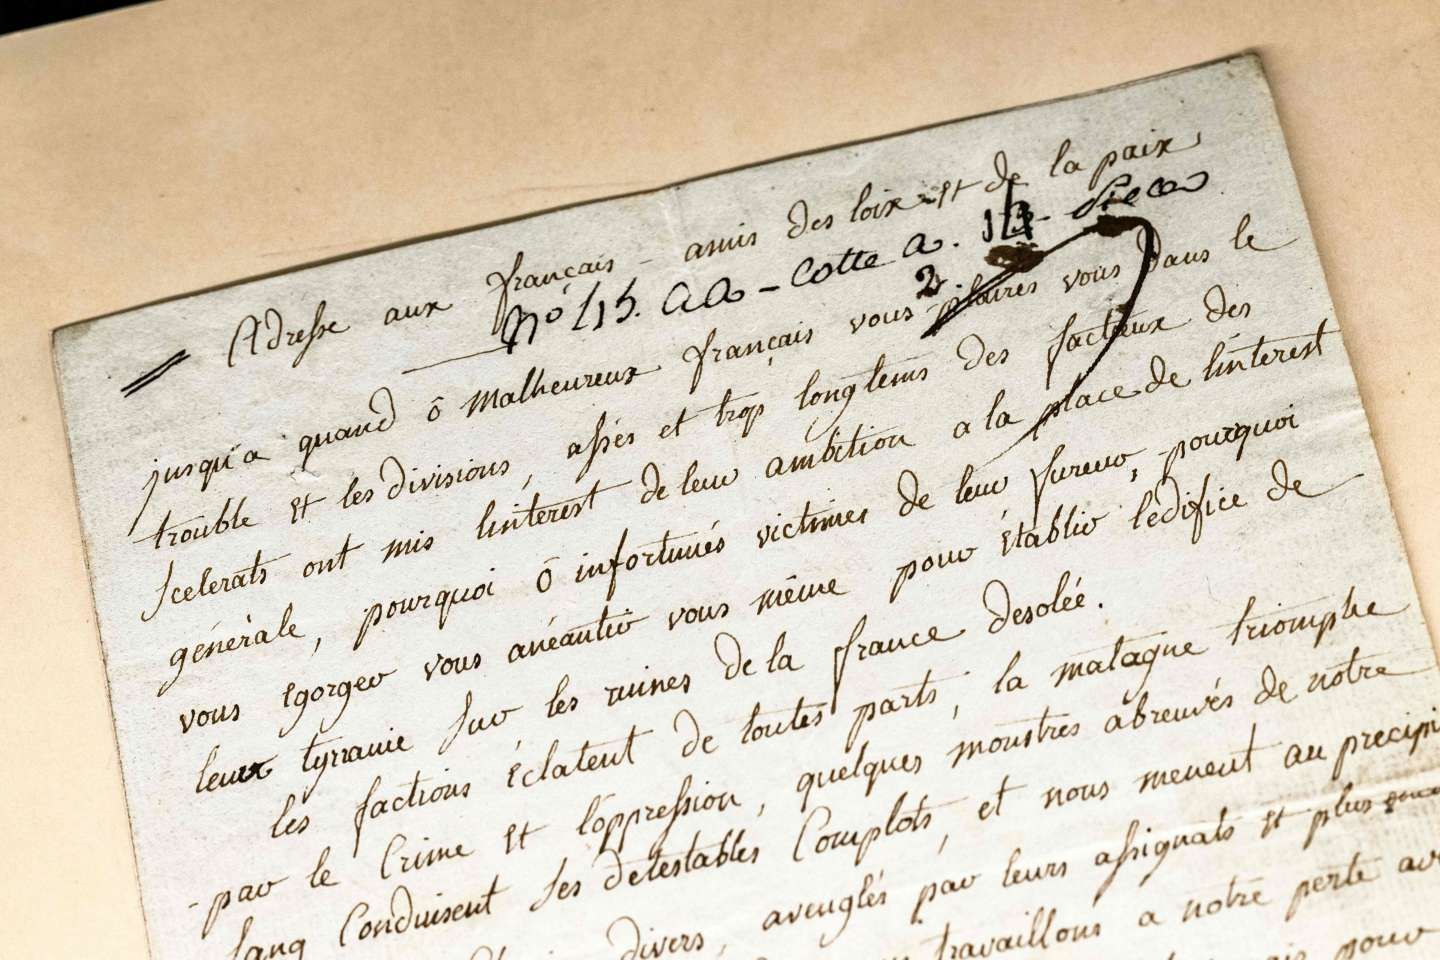 Adresse aux français amis des loix et de la paix
N° 115. aa - Cotte a. 2. Piece
jusqu'a quand ô malheureux français vous plaires vous dans le
trouble et les divisions, assés et trop longtems des factieux des
scelerats ont mis linterest de leur ambition a la place de linterest
générale, pourquoi ô infortunés victimes de leur fureur, pourquoi
vous egorger vous anéantir vous même pour établir lédifice de
leur tyrranie sur les ruines de la france desolée.
les factions éclatent de toutes parts, la matagne triomphe
par le Crime et lóppression, quelques monstres abreuvés de notre
sang Conduisent ses détestables Complots, et nous menent au precipi
divers, aveuglés par leurs assignats et plus
travaillons a notre perte av
pour